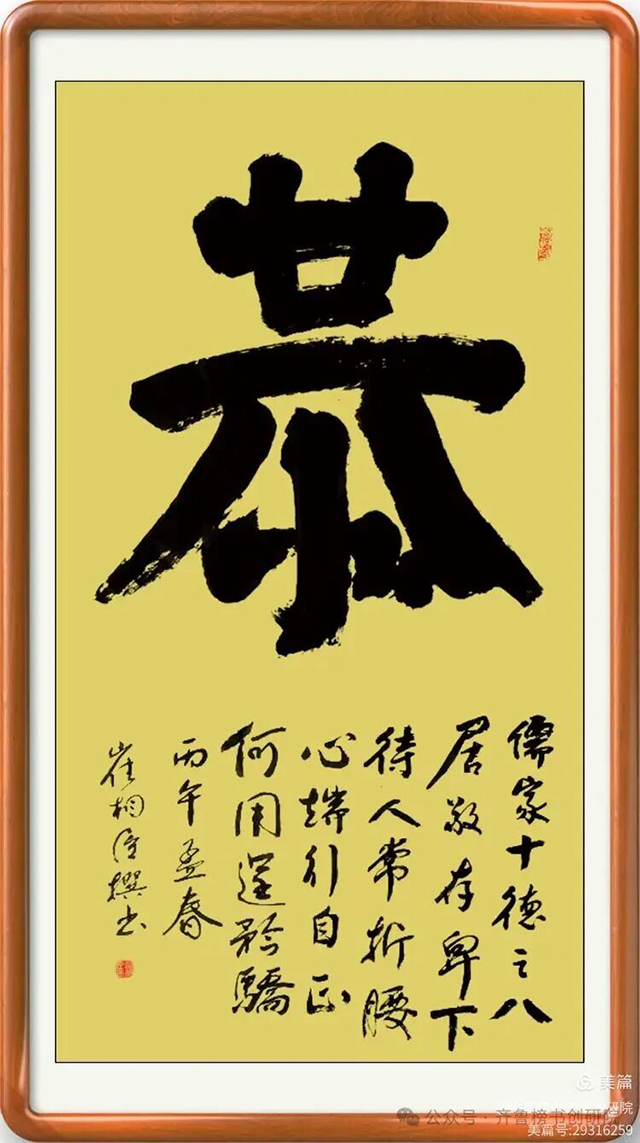 恭
儒家十德之八
居敬存卑下
待人常折腰
心端行自正
何用逞矜驕
丙午孟春
崔桐撰书
美篇
公众号 · 齐鲁榜书创研院
美篇号:29316259